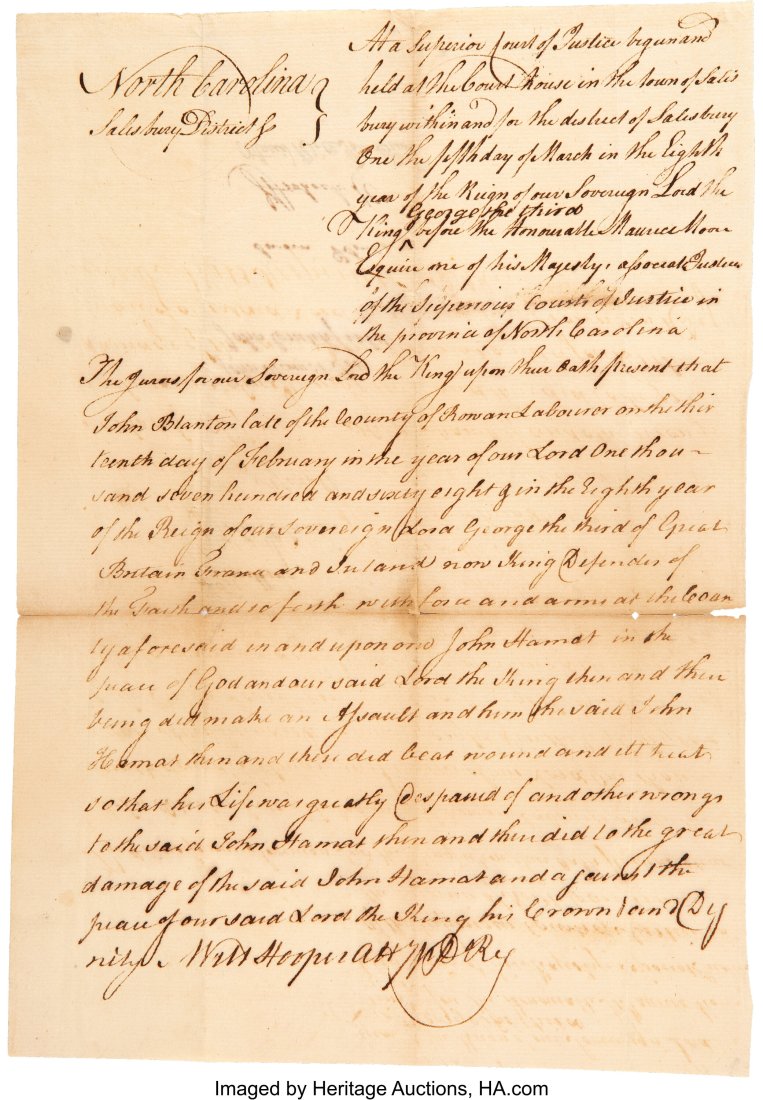 North Carolina }
Salisbury District ss
At a Superior Court of Justice begun and
held at the Court House in the town of Salis
bury within and for the district of Salesbury
One the fifth day of March in the Eighth
year of the Reign of our Sovereign Lord the
George the third
King ^ before the Honourable Maurice Moore
Esquire one of his Majestys associate Justice
of the Superious Courts of Justice in
the province of North Carolina
The Jurors for our Sovereign Lord the King upon their Oath present that
John Blanton late of the County of Rowan Labourer on the thir
teenth day of February in the year of our Lord One thou-
sand seven hundred and sixty eight & in the Eighth year
of the Reign of our Sovereign Lord George the third of Great
Britain France and Ireland now King Defender of
the Faith and so forth with force and arms at the Coun
ty aforesaid in and upon one John Hamat in the
peace of God and our said Lord the King then and there
being did make an Assault and him the said John
Hamat then and there did beat wound and ill treat
so that his Life was greatly Despaired of and other wrongs
to the said John Hamat then and there did to the great
damage of the said John Hamat and against the
peace of our said Lord the King his Crown and Dig
nity. Will Hooper Atty Dom Reg
Imaged by Heritage Auctions, HA.com